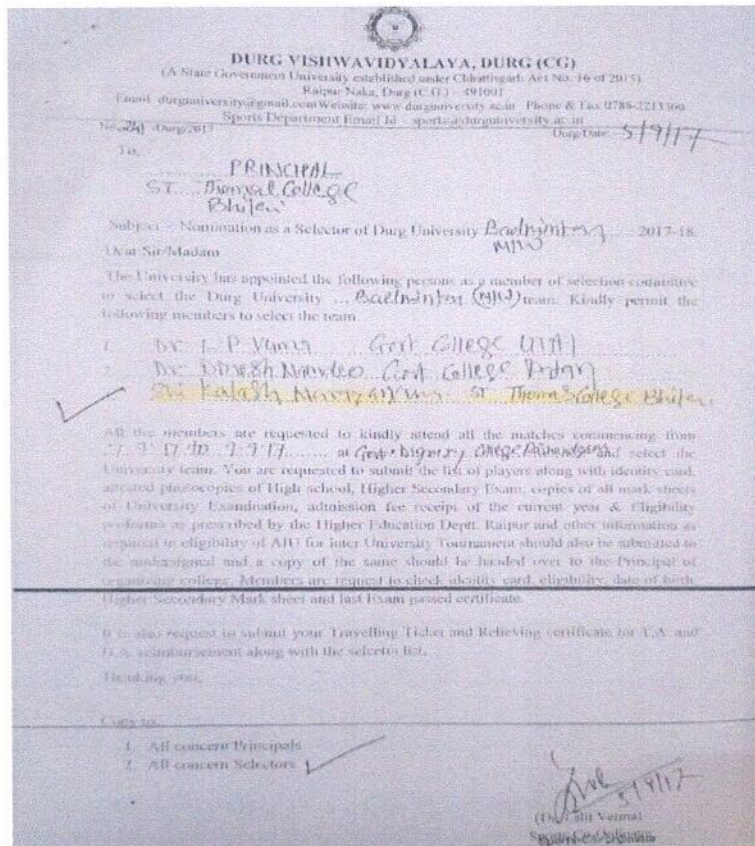 DURG VISHWAVIDYALAYA, DURG (CG)
(A State Government University established under Chhattisgarh Act No. 16 of 2015)
Raipur Naka, Durg (C.G.) - 491001
Email durguniversity@gmail.com Website: www.durguniversity.ac.in Phone & Fax 0788-2213300
Sports Department Email Id - sports@durguniversity.ac.in
Durg 2017 Durg/Date 5/9/17
To,
PRINCIPAL
ST. Thomas College
Bhilai
Subject - Nomination as a Selector of Durg University Badminton M/W 2017-18
Dear Sir/Madam
The University has appointed the following persons as a member of selection committee
to select the Durg University ... Badminton (M/W) team. Kindly permit the
following members to select the team.
1. Dr L P Verma Govt College
2. Dr Dinesh Namdeo Govt College
ST. Thomas College Bhilai
All the members are requested to kindly attend all the matches commencing from
7.9.17 to 9.9.17 at Govt. College and select the
University team. You are requested to submit the list of players along with identity card,
attested photocopies of High school, Higher Secondary Exam, copies of all mark sheets
of University Examination, admission fee receipt of the current year & Eligibility
proforma as prescribed by the Higher Education Deptt. Raipur and other information as
required in eligibility of AIU for inter University Tournament should also be submitted to
the undersigned and a copy of the same should be handed over to the Principal of
organizing college. Members are request to check identity card, eligibility, date of birth
Higher Secondary Mark sheet and last Exam passed certificate.
It is also request to submit your Travelling Ticket and Relieving certificate for T.A. and
D.A. reimbursement along with the selection list.
Thanking you,
Copy to
1. All concern Principals
2. All concern Selectors
5/9/17
(Dr. Lalit Verma)